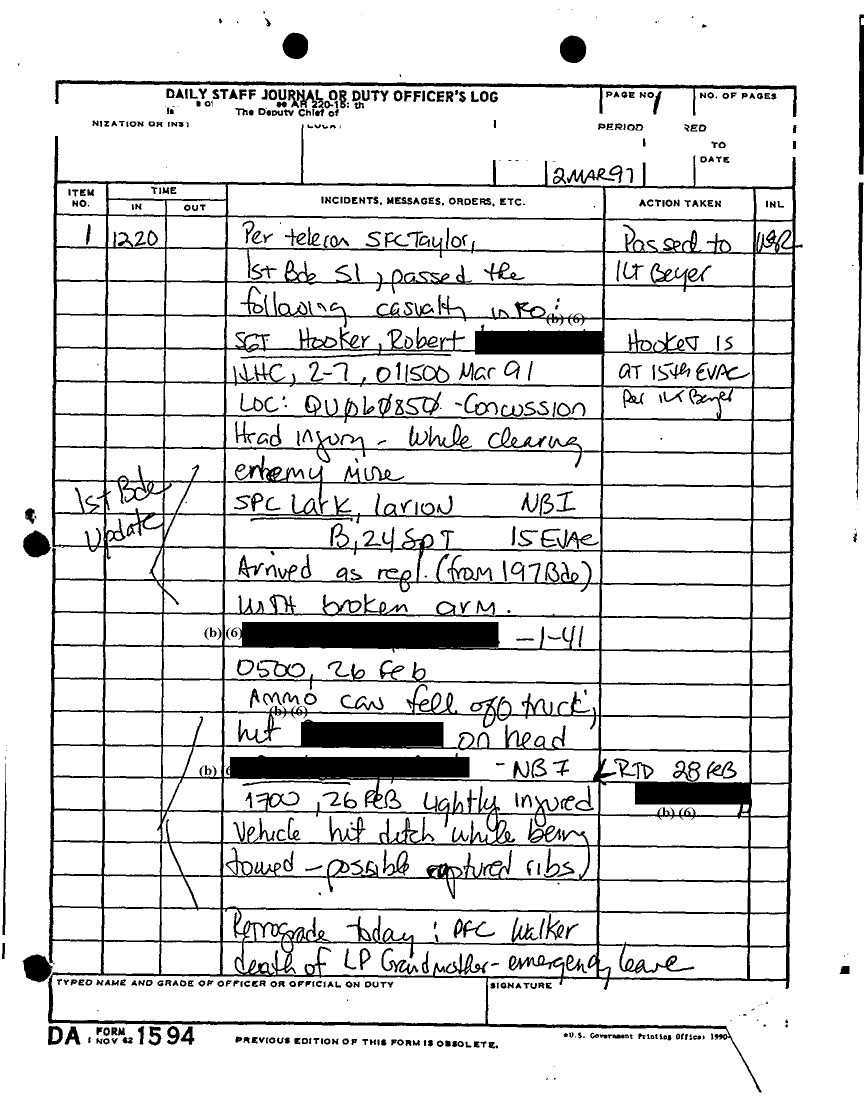 DAILY STAFF JOURNAL OR DUTY OFFICER'S LOG
PAGE NO. 1
NO. OF PAGES
AR 220-15; th
The Deputy Chief of
NIZATION OR INST
PERIOD RED
TO
DATE
2 MAR 91
ITEM NO.
TIME
IN OUT
INCIDENTS, MESSAGES, ORDERS, ETC.
ACTION TAKEN
INL
1 1220 Per telecon SFC Taylor, Passed to
1st Bde S1, passed the 1LT Beyer
following casualty info:
(b)(6)
SGT Hooker, Robert Hooker is
HHC, 2-7, 011500 Mar 91 AT 15th EVAC
LOC: QU060850 - Concussion Per 1LT Beyer
Head injury - While clearing
enemy mine
1st Bde Update
SPC Lark, Larion NBI
B, 24 Spt 15 EVAC
Arrived as repl. (from 197 Bde)
with broken arm.
(b)(6) -1-41
0500, 26 Feb
Ammo can fell off truck,
(b)(6)
hit on head
(b)(6 - NBI RTD 28 FEB
1700, 26 FEB Lightly injured
(b)(6)
Vehicle hit ditch while being
towed - possible ruptured ribs)
Retrograde today: PFC Walker
death of LP Grandmother - emergency leave
TYPED NAME AND GRADE OF OFFICER OR OFFICIAL ON DUTY
SIGNATURE
DA FORM 1 NOV 62 1594
PREVIOUS EDITION OF THIS FORM IS OBSOLETE.
U.S. Government Printing Office: 1990-